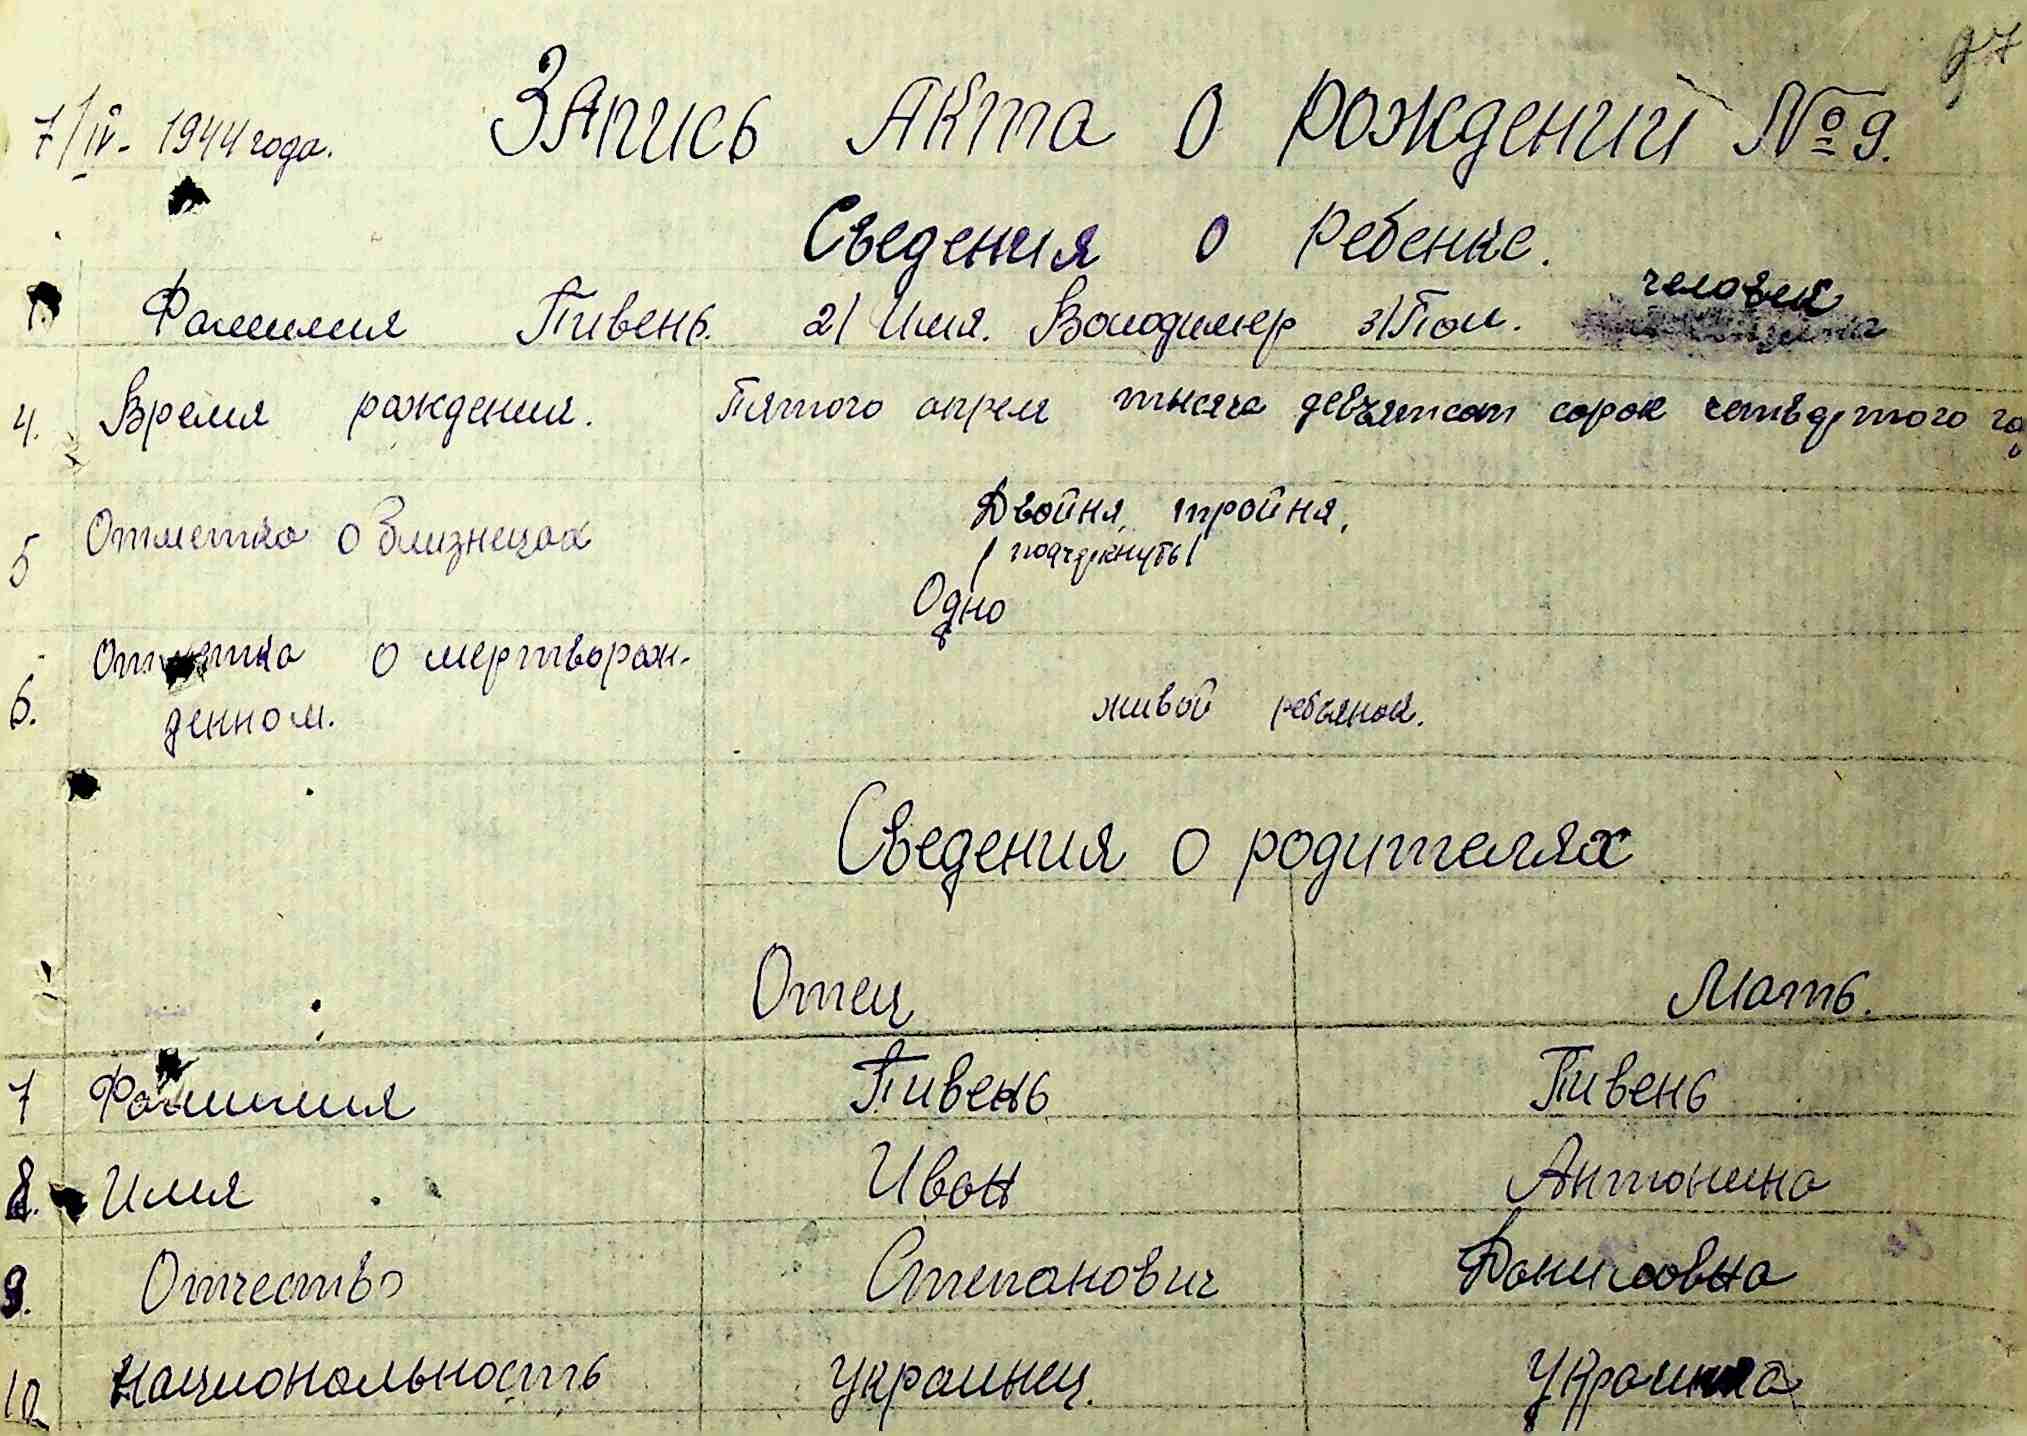 97
7/IV - 1944 года. Запись Акта о рождений № 9.
Сведения о Ребенке.
человек
1. Фамилия Пивень. 2/ Имя. Володимер 3/ Пол.
4. Время рождения. Пятого апреля тысяча девъятсот сорок четвертого го
5 Отметка о близнецах Двойня, тройня,
/ подчеркнуть /
Одно
Отметка о мертворож-
6. денном. живой ребьянок.
Сведения о родителях
Отец Мать.
7 Фамилия Пивень Пивень
8. Имя Иван Антонина
9. Отчество Степанович Даниловна
10 Национальность Украинец. Украинка